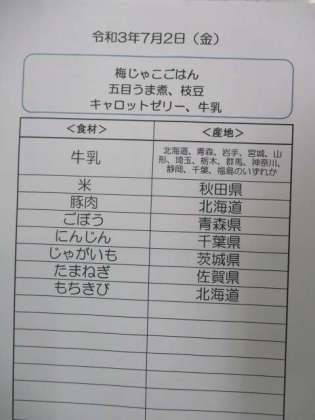 令和3年7月2日（金）
梅じゃこごはん
五目うま煮、枝豆
キャロットゼリー、牛乳
＜食材＞ ＜産地＞
牛乳 北海道、青森、岩手、宮城、山
形、埼玉、栃木、群馬、神奈川、
静岡、千葉、福島のいずれか
米 秋田県
豚肉 北海道
ごぼう 青森県
にんじん 千葉県
じゃがいも 茨城県
たまねぎ 佐賀県
もちきび 北海道